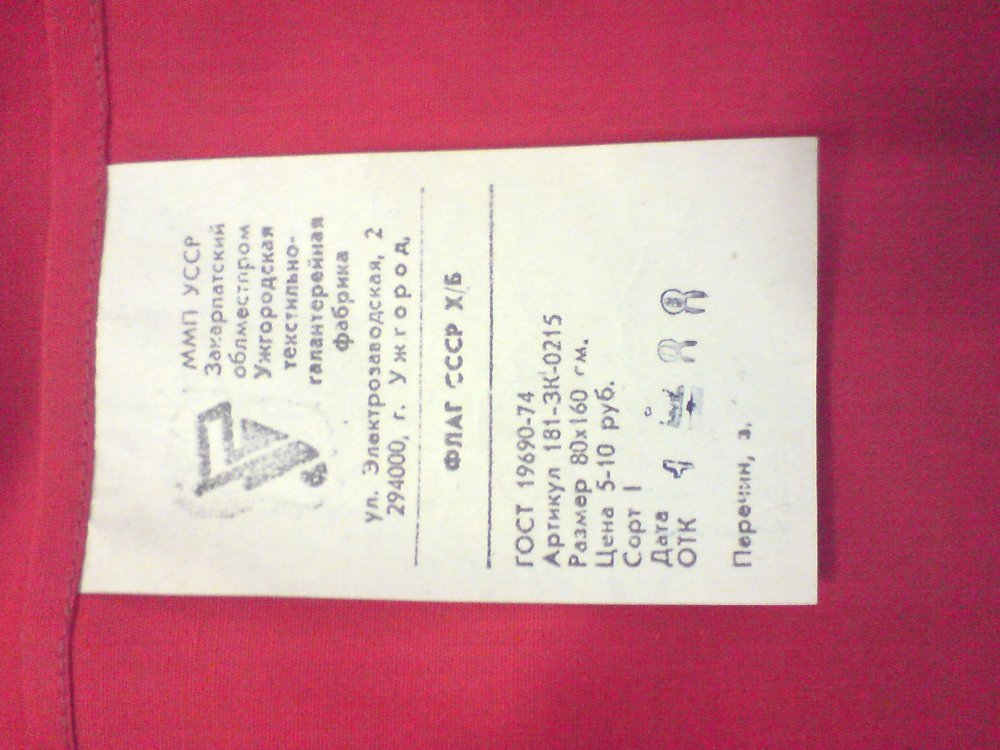 ММП УССР
Закарпатский
облместпром
Ужгородская
текстильно-
галантерейная
фабрика
ул. Электрозаводская, 2
294000, г. Ужгород.
ФЛАГ СССР Х/Б
ГОСТ 19690-74
Артикул 181-ЗК-0215
Размер 80х160 см.
Цена 5-10 руб.
Сорт I
Дата
ОТК
Перечин, з.